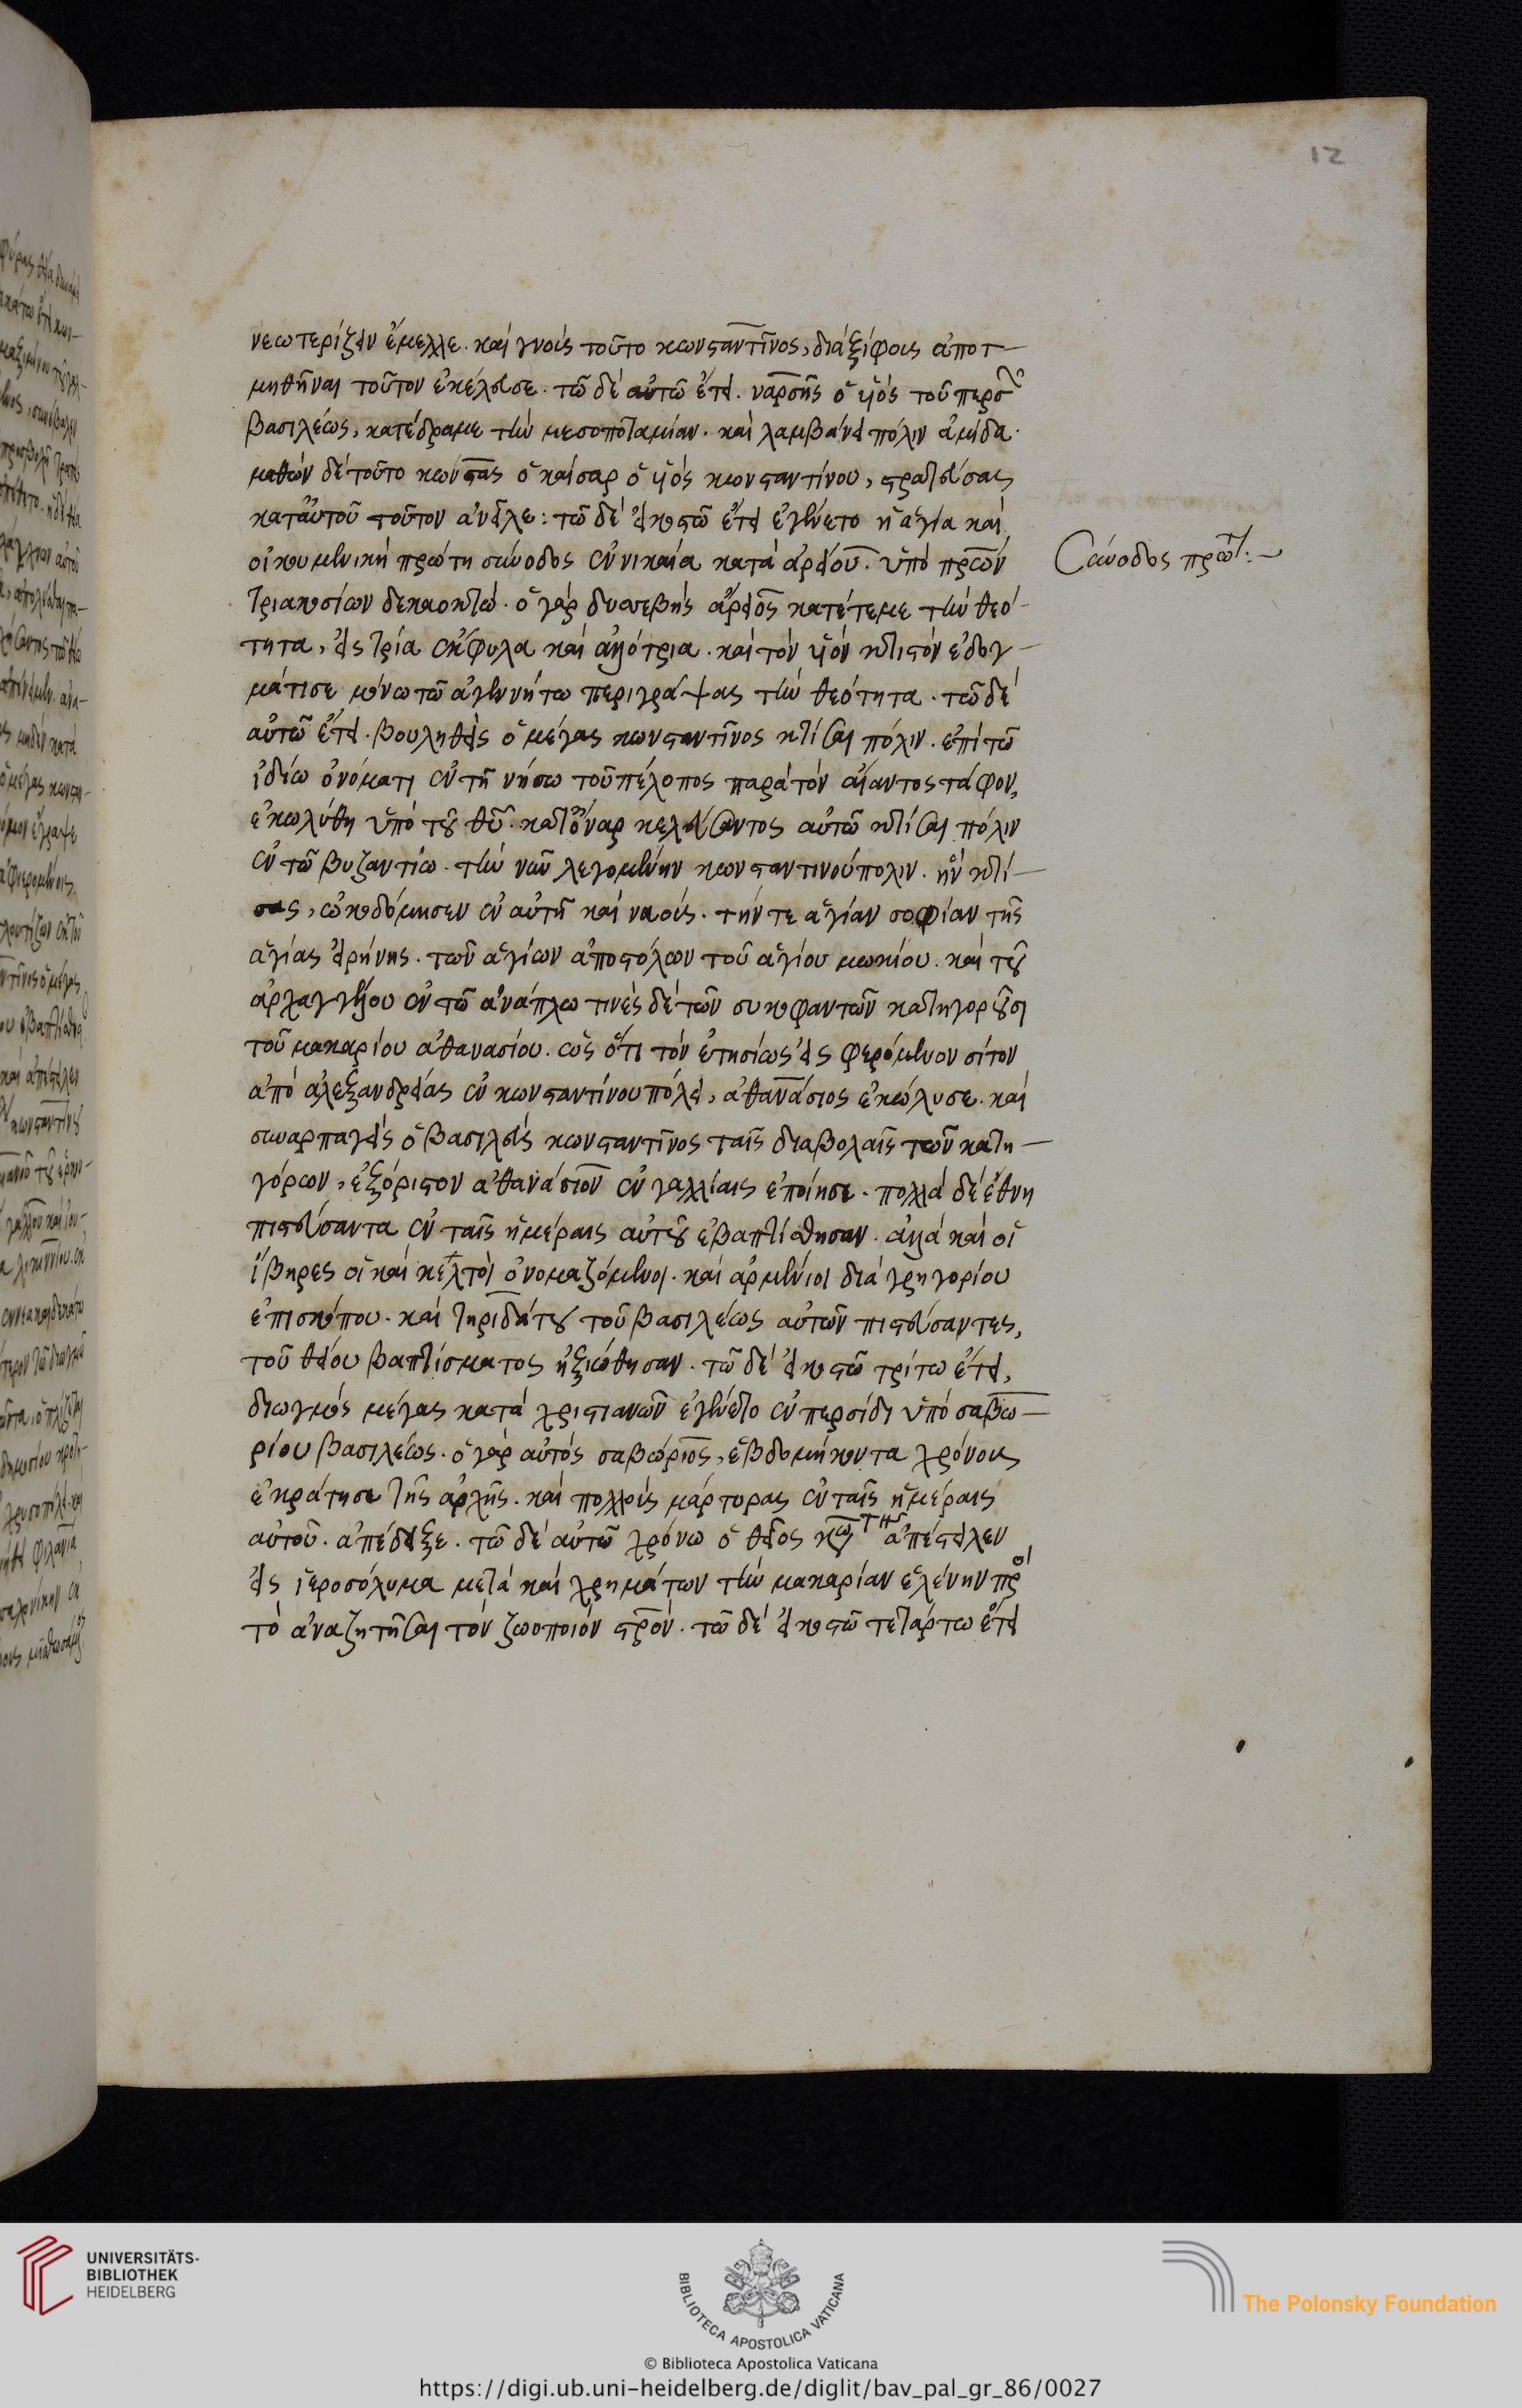 12
νεωτερίζειν ἔμελλε. καὶ γνοὺς τοῦτο κωνσταντῖνος, διὰ ξίφους ἀποτ-
μηθῆναι τοῦτον ἐκέλευσε. τῶ δὲ αὐτῶ ἔτει. ναρσῆς ὁ ὑιὸς τοῦ περσῶν
βασιλέως, κατέδραμε τὴν μεσοποταμίαν. καὶ λαμβάνει πόλιν ἀμίδα.
μαθὼν δὲ τοῦτο κώνστας ὁ καίσαρ ὁ ὑιὸς κωνσταντίνου, στρατεύσας
κατ' αὐτοῦ τοῦτον ἀνεῖλε: τῶ δὲ εἰκοστῶ ἔτει ἐγένετο ἡ ἁγία καὶ
οἰκουμενικὴ πρώτη σύνοδος ἐν νικαία κατὰ ἀρείου. ὑπὸ πρων
τριακοσίων δεκαοκτώ. ὁ γὰρ δυσεβὴς ἄρειος κατέτεμε τὴν θεό-
τητα, εἰς τρία ἔκφυλα καὶ ἀλλότρια. καὶ τὸν ὑιὸν κτιστὸν ἐδογ-
μάτισε μόνω τῶ ἀγεννήτω περιγράψας τὴν θεότητα. τῶ δὲ
αὐτῶ ἔτει. βουληθεὶς ὁ μέγας κωνσταντῖνος κτίσαι πόλιν. ἐπὶ τῶ
ἰδίω ὀνόματι ἐν τῆ νήσω τοῦ πέλοπος παρὰ τὸν αἴαντος τάφον,
ἐκωλύθη ὑπὸ τοῦ θυ. κατ' ὄναρ κελεύσαντος αὐτῶ κτίσαι πόλιν
ἐν τῶ βυζαντίω. τὴν νῦν λεγομένην κωνσταντινούπολιν. ἣν κτί-
σας, ὠκοδόμησεν ἐν αὐτῆ καὶ ναούς. τήν τε ἁγίαν σοφίαν τῆς
ἁγίας εἰρήνης. τῶν ἁγίων ἀποστόλων τοῦ ἁγίου μωκίου. καὶ τοῦ
ἀρχαγγέλου ἐν τῶ ἀνάπλω τινὲς δὲ τῶν συκοφαντῶν κατηγοροῦσι
τοῦ μακαρίου ἀθανασίου. ὡς ὅτι τὸν ἐτησίως εἰσφερόμενον σίτον
ἀπὸ ἀλεξανδρείας ἐν κωνσταντίνουπόλει, ἀθανάσιος ἐκώλυσε. καὶ
συναρπαγεὶς ὁ βασιλεὺς κωνσταντῖνος ταῖς διαβολαῖς τῶν κατη-
γόρων, ἐξόριστον ἀθανάσιον ἐν γαλλίαις ἐποίησε. πολλὰ δὲ ἔθνη
πιστεύσαντα ἐν ταῖς ἡμέραις αὐτοῦ ἐβαπτίσθησαν. ἀλλὰ καὶ οἱ
ἴβηρες οἱ καὶ κελτοὶ ὀνομαζόμενοι. καὶ ἀρμένιοι διὰ γρηγορίου
ἐπισκόπου. καὶ τηριδάτου τοῦ βασιλέως αὐτῶν πιστεύσαντες,
τοῦ θείου βαπτίσματος ἠξιώθησαν. τῶ δὲ εἰκοστῶ τρίτω ἔτει,
διωγμὸς μέγας κατὰ χριστιανῶν ἐγένετο ἐν περσίδι ὑπὸ σαβω-
ρίου βασιλέως. ὁ γὰρ αὐτὸς σαβώριος, ἑβδομήκοντα χρόνους
ἐκράτησε τῆς ἀρχῆς. καὶ πολλοὺς μάρτυρας ἐν ταῖς ἡμέραις
αὐτοῦ. ἀπέδειξε. τῶ δὲ αὐτῶ χρόνω ὁ θεῖος ἀπέστειλεν
εἰς ἱεροσόλυμα μετὰ καὶ χρημάτων τὴν μακαρίαν ἑλένην πρὸς
τὸ ἀναζητῆσαι τὸν ζωοποιὸν στρον. τῶ δὲ εἰκοστῶ τετάρτω ἔτει
Σύνοδος πρώτ:~
UNIVERSITÄTS-
BIBLIOTHEK
HEIDELBERG
BIBLIOTECA APOSTOLICA VATICANA
The Polonsky Foundation
© Biblioteca Apostolica Vaticana
https://digi.ub.uni-heidelberg.de/diglit/bav_pal_gr_86/0027